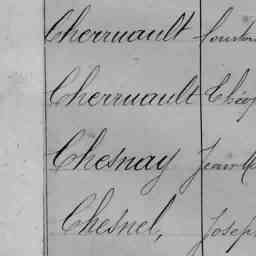 Cherruault
Cherruault
Chesnay Jean
Chesnel, Joseph